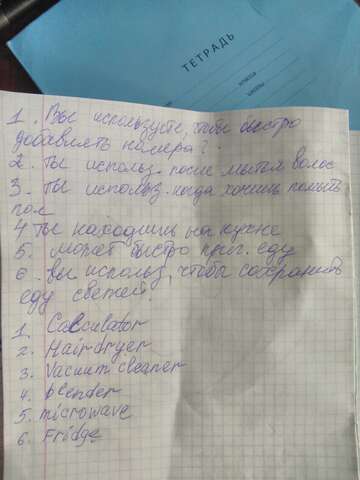 ТЕТРАДЬ
КЛАССА
ШКОЛЫ
1. Вы используете, чтобы быстро
добавлять номера?.
2. Ты использ. после мытья волос
3. Ты использ. когда хочешь помыть
пол
4 Ты находишь на кухне
5. может быстро приг. еду
6. вы использ, чтобы сохранить
еду свежей.
1. Calculator
2. Hairdryer
3. Vacuum cleaner
4. blender
5. microwave
6. Fridge